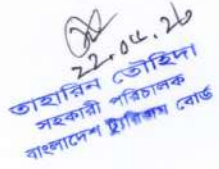 22.04.26
তাহারিন তৌহিদা
সহকারী পরিচালক
বাংলাদেশ ট্যুরিজম বোর্ড